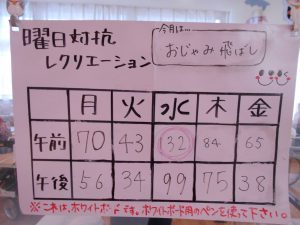 曜日対抗
レクリエーション
今月は…
おじゃみ飛ばし
月 火 水 木 金
午前 70 43 32 84 65
午後 56 34 99 75 38
※これは、ホワイトボードです。ホワイトボード用のペンを使って下さい。